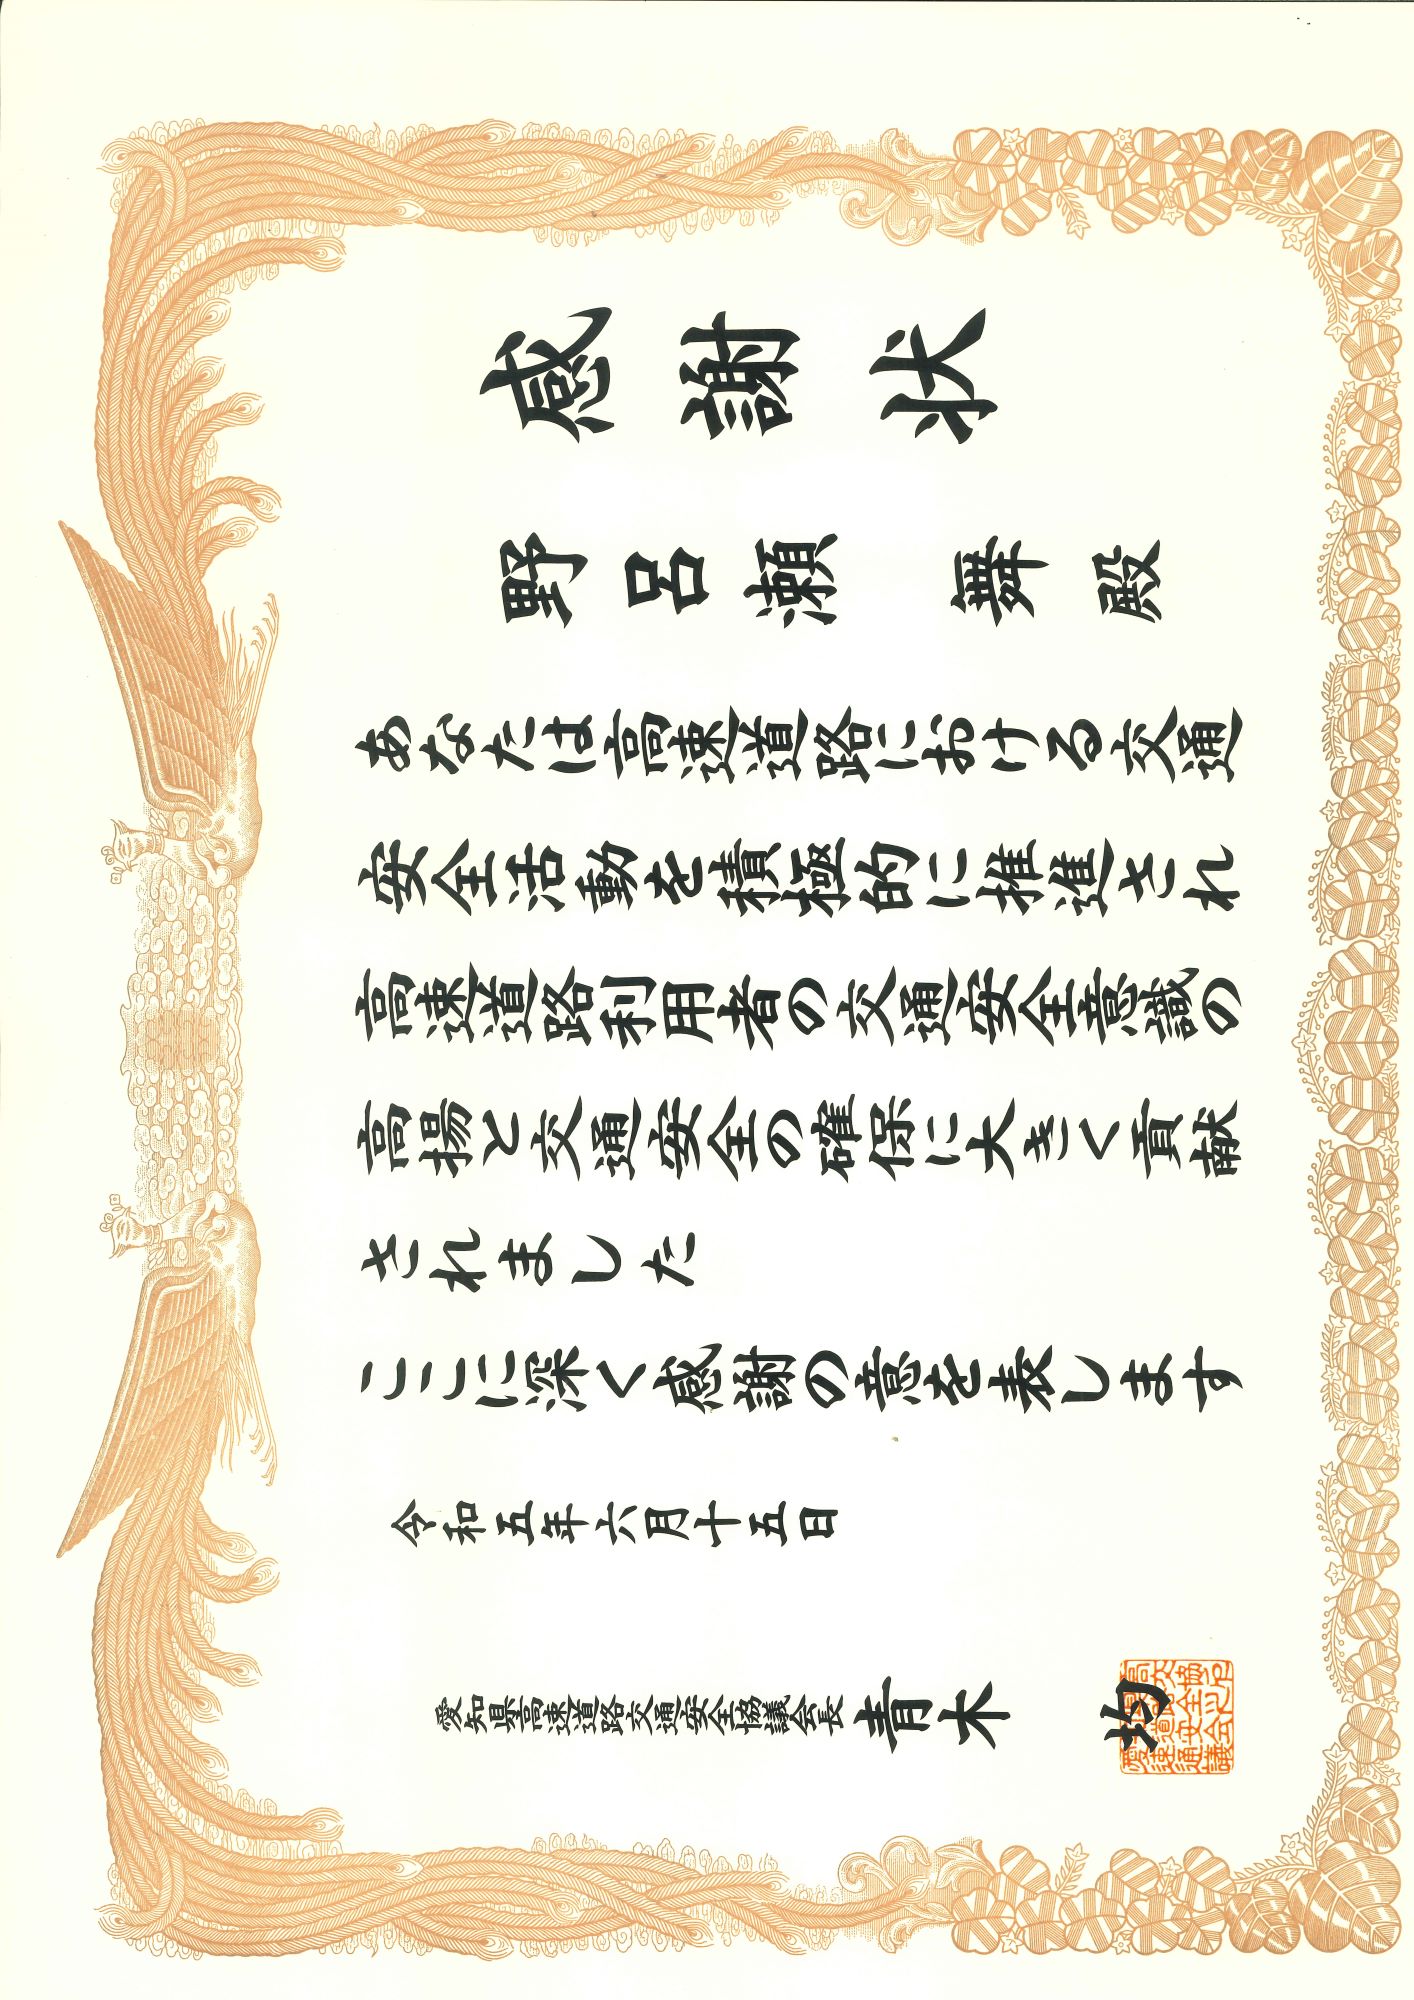 感謝状
野呂瀬 舞 殿
あなたは高速道路における交通
安全活動を積極的に推進され
高速道路利用者の交通安全意識の
高揚と交通安全の確保に大きく貢献
されました
ここに深く感謝の意を表します
令和五年六月十五日
愛知県高速道路交通安全協議会長 青木 均